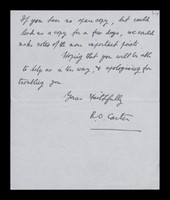 If you have no spare copy, but could
lend us a copy for a few days, we could
make notes of the more important points.
Hoping that you will be able
to help us in this way, & apologising for
troubling you
Yours faithfully
R.O. Carter